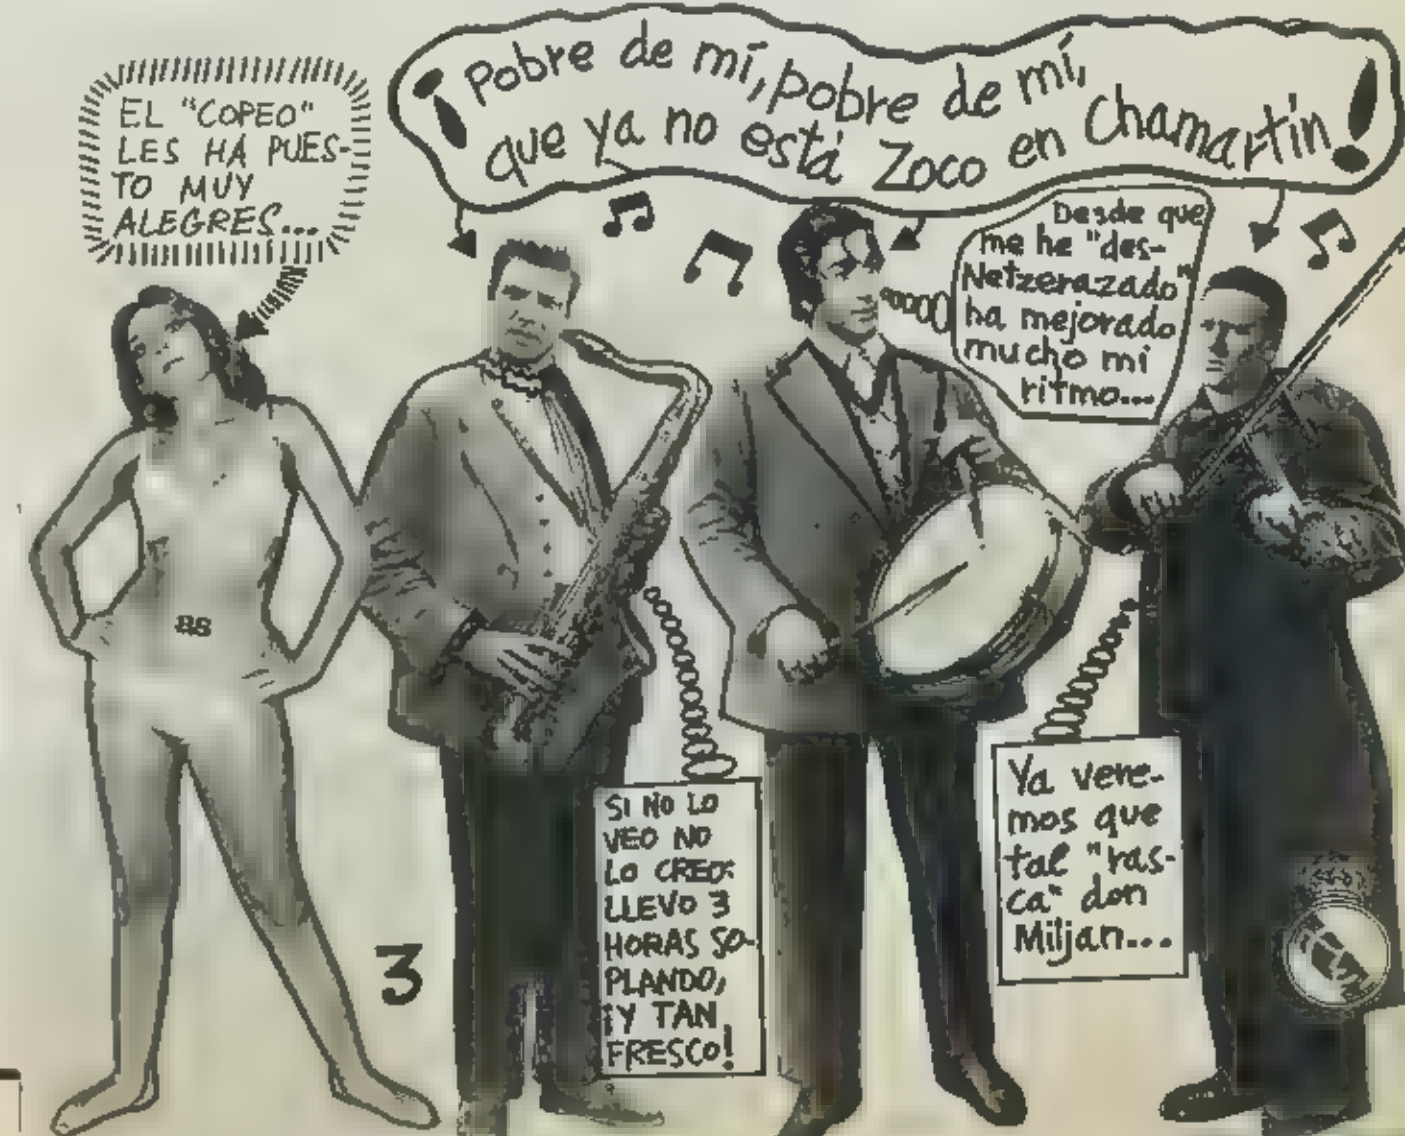 EL "COPEO"
LES HA PUES-
TO MUY
ALEGRES...
¡Pobre de mí, pobre de mí,
que ya no está Zoco en Chamartín!
Desde que
me he "des-
Netzerazado"
ha mejorado
mucho mi
ritmo...
as
SI NO LO
VEO NO
LO CREO:
LLEVO 3
HORAS SO-
PLANDO,
¡Y TAN
FRESCO!
Ya vere-
mos que
tal "ras-
ca" don
Miljan...
3